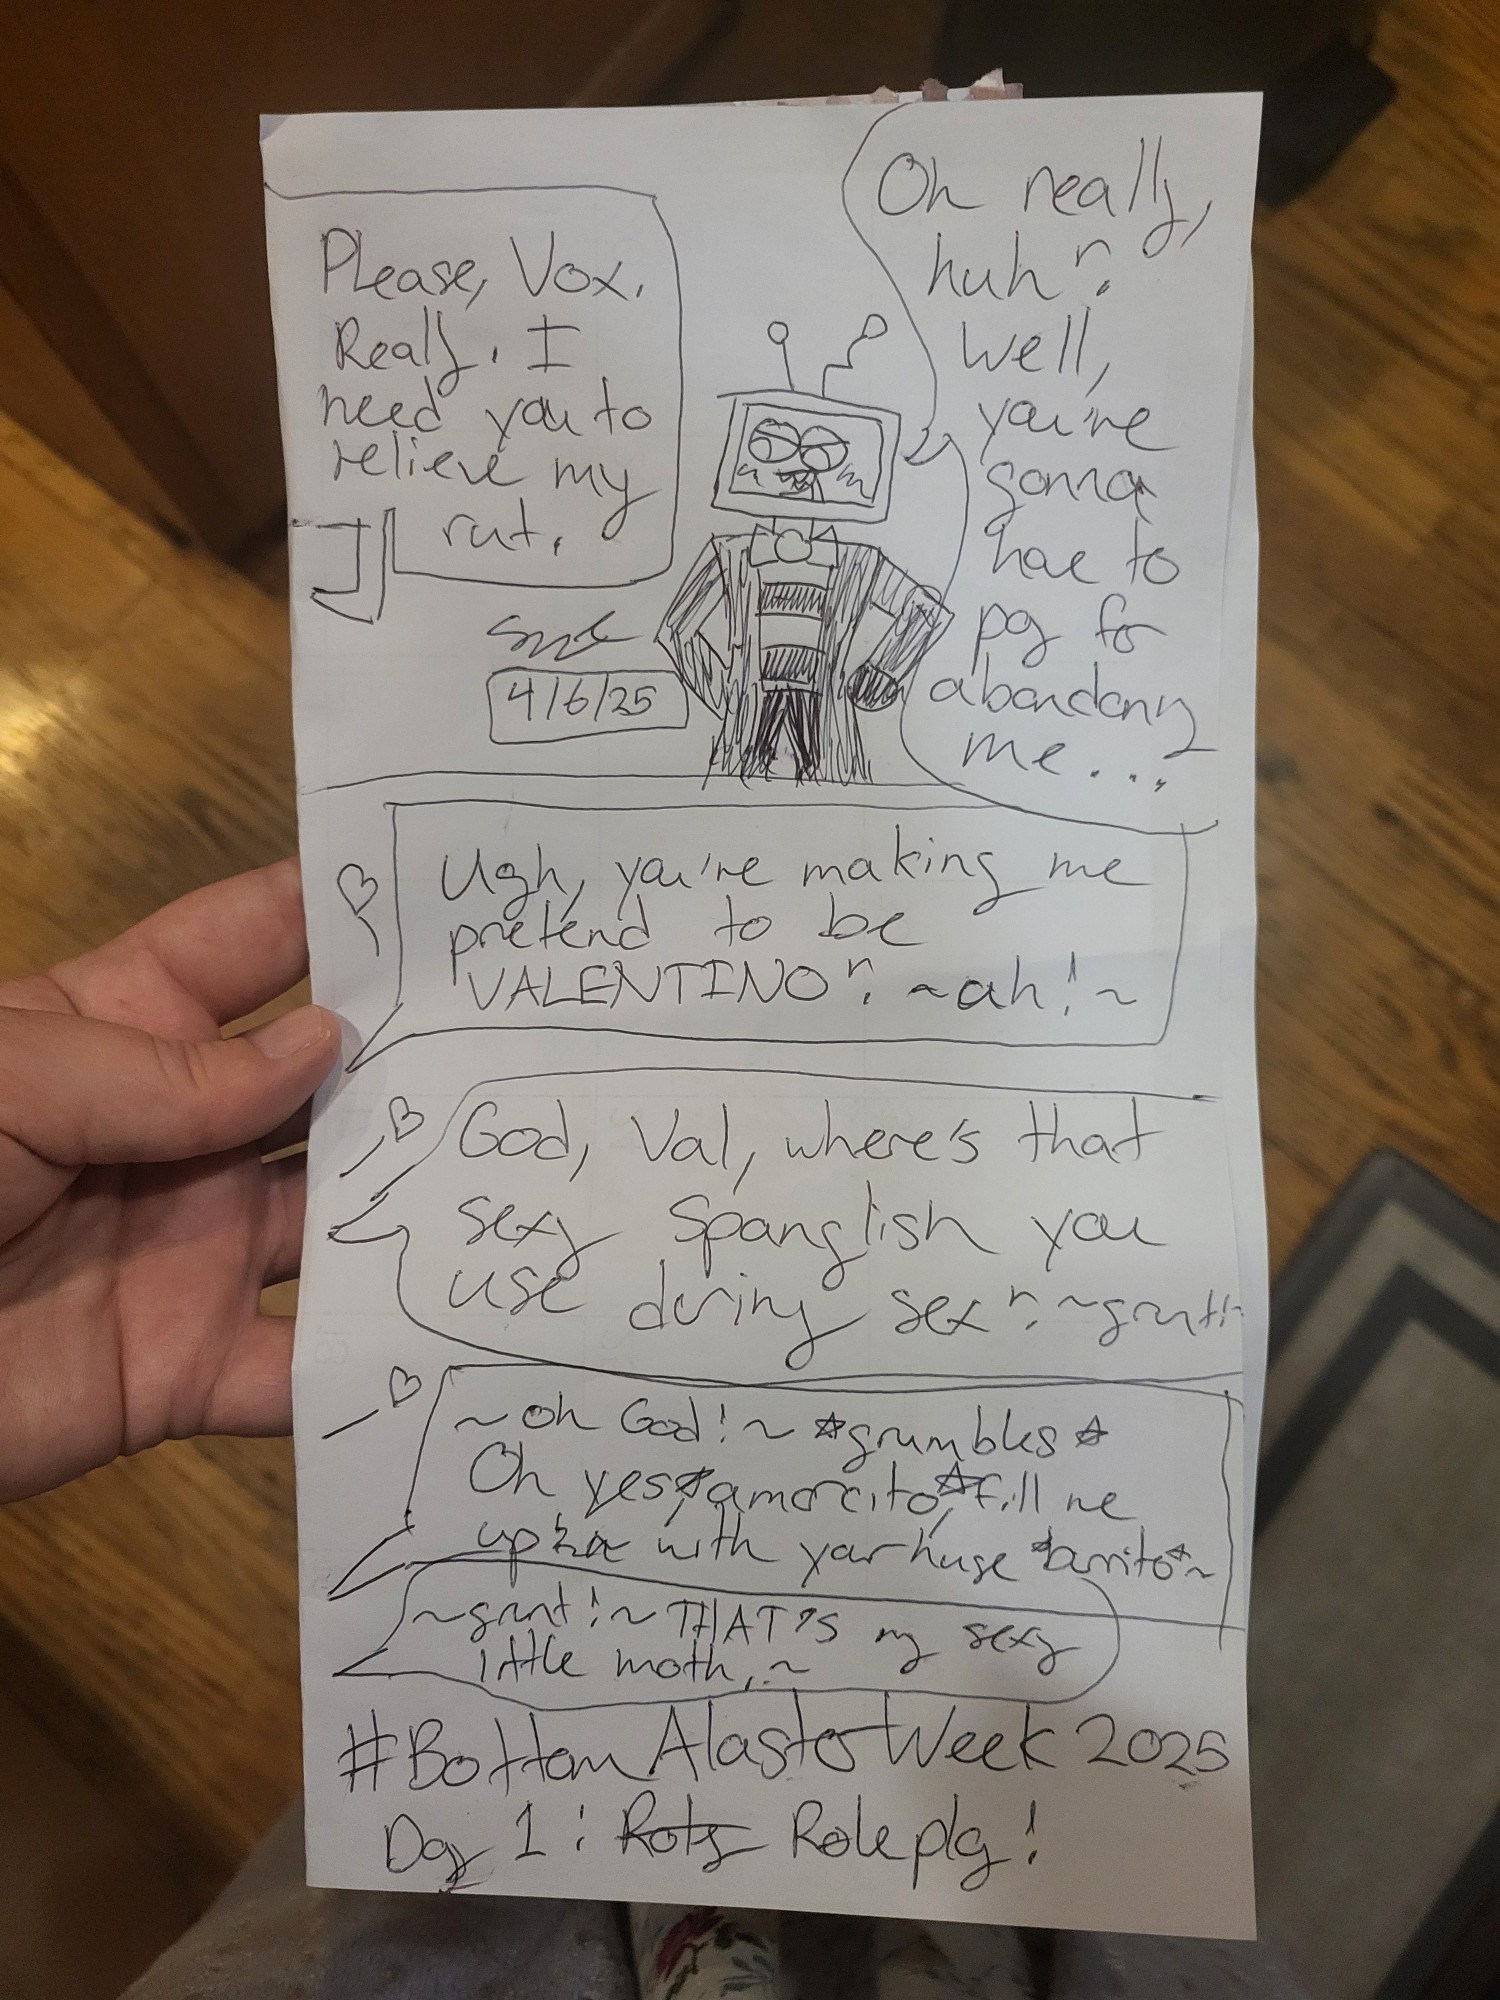 Please, Vox.
Really. I
need you to
relieve my
rut.
Oh really,
huh?
Well,
you're
gonna
hae to
pay for
abandony
me...;
4/6/25
Ugh, you're making me
pretend to be
VALENTINO? ~ah!~
God, Val, where's that
sexy Spanglish you
use during sex? ~grunt!~
~oh God!~ *grumbles*
Oh yes *amorcito,* fill me
up with your huge *burrito*~
~grunt!~ THAT's my sexy
little moth.~
#BottomAlastorWeek2025
Day 1: Roleplay!